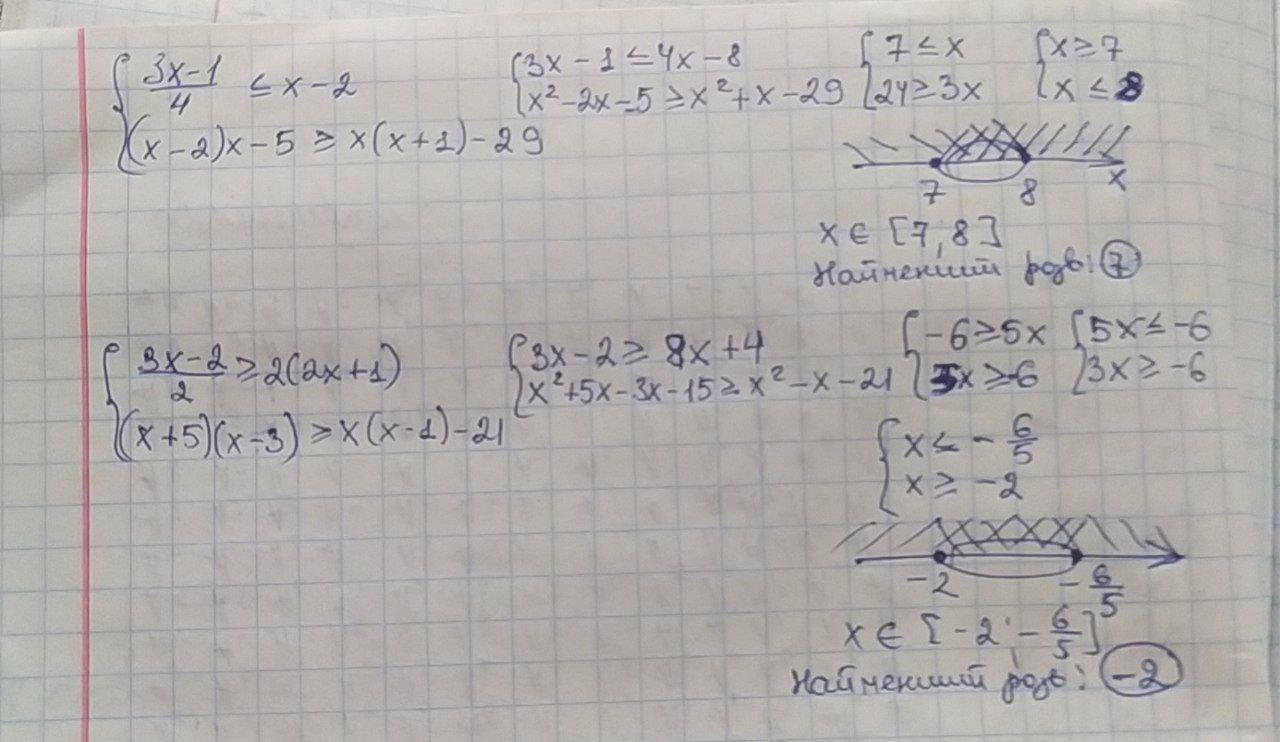 { (3x-1)/4 ≤ x-2
(x-2)x-5 ≥ x(x+1)-29
{ 3x-1 ≤ 4x-8
x²-2x-5 ≥ x²+x-29
{ 7 ≤ x
24 ≥ 3x
{ x ≥ 7
x ≤ 8
7 8 x
x ∈ [7; 8]
Найменший розв: 7
{ (3x-2)/2 ≥ 2(2x+1)
(x+5)(x-3) ≥ x(x-1)-21
{ 3x-2 ≥ 8x+4
x²+5x-3x-15 ≥ x²-x-21
{ -6 ≥ 5x
3x ≥ -6
{ 5x ≤ -6
3x ≥ -6
{ x ≤ -6/5
x ≥ -2
-2 -6/5
x ∈ [-2; -6/5]
Найменший розв: -2